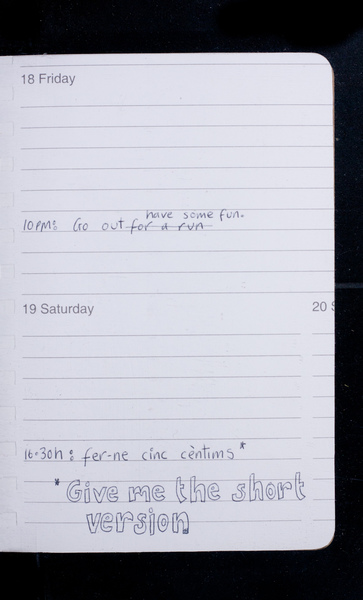 18 Friday
have some fun.
10PM: Go out for a run
19 Saturday
20 S
16:30h: fer-ne cinc cèntims*
*Give me the short
version